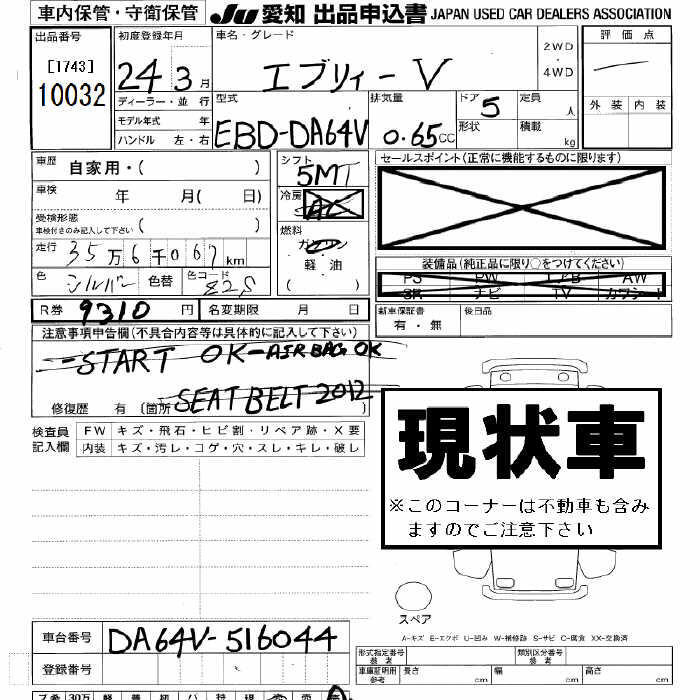 車内保管・守衛保管 JU 愛知 出品申込書 JAPAN USED CAR DEALERS ASSOCIATION
出品番号 初度登録年月 車名・グレード 2WD 評価点
[1743] 24 3月 エブリィーV ・
10032 4WD
ディーラー・並行 型式 排気量 ドア 5 定員 人 外装 内装
モデル年式 年 EBD-DA64V 0.65cc 形状 積載 kg
ハンドル 左・右
車歴 自家用・( ) シフト 5MT セールスポイント(正常に機能するものに限ります)
車検 年 月( 日) 冷房 AC
受検形態
車検付きのみ記入して下さい ( ) 燃料 ガソリン
走行 35万6千067km 軽・油 装備品(純正品に限り○をつけてください)
色 シルバー 色替 色コード Z2S PS PW エアB AW
SR ナビ TV カワシート
R券 9310円 名変期限 月 日 新車保証書 後日品
有・無
注意事項申告欄(不具合内容等は具体的に記入して下さい)
-START OK-AIRBAG OK
SEAT BELT 2012
修復歴 有 (箇所 )
検査員 FW キズ・飛石・ヒビ割・リペア跡・X要
記入欄 内装 キズ・汚レ・コゲ・穴・スレ・キレ・破レ
現状車
※このコーナーは不動車も含み
ますのでご注意下さい
スペア
A-キズ E-エクボ U-凹み W-補修跡 S-サビ C-腐食 XX-交換済
車台番号 DA64V-516044 形式指定番号 類別区分番号
登録番号 車庫証明用 長さ cm 幅 cm 高さ cm
参考